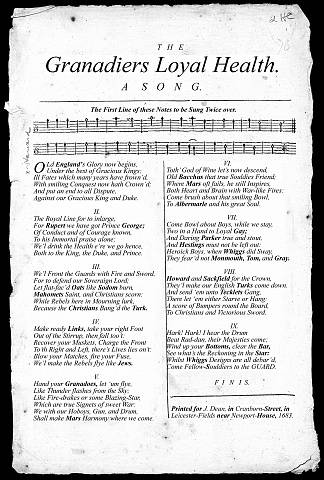 THE
Granadiers Loyal Health.
A SONG.
The First Line of these Notes to be Sung Twice over.
OLd England's Glory now begins,
Under the best of Gracious Kings:
Ill Fates which many years have frown'd,
With smiling Conquest now hath Crown'd;
And put an end to all Dispute,
Against our Gracious King and Duke.
II.
The Royal Line for to inlarge,
For Rupert we have got Prince George;
Of Conduct and of Courage known,
To his Immortal praise alone;
We'l drink the Health e're we go hence,
Both to the King, the Duke, and Prince.
III.
We'l Front the Guards with Fire and Sword,
For to defend our Sovereign Lord:
Let flat-fac'd Oats like Sodom burn,
Mahomets Saint, and Christians scorn;
While Rebels here in Mourning lurk,
Because the Christians Bang'd the Turk.
IV.
Make ready Links, take your right Foot
Out of the Stirrup, then fall too't:
Recover your Muskets, Charge the Front
To th Right and Left, there's Lives lies on't:
Blow your Matches, fire your Fuse,
We'l make the Rebels flye like Jews.
V.
Hand your Granadoes, let 'um flye,
Like Thunder flashes from the Sky:
Like Fire-drakes or some Blazing-Star,
Which are true Signets of sweet War:
We with our Hoboys, Gun, and Drum,
Shall make Mars Harmony where we come.
VI.
Toth' God of Wine let's now descend,
Old Bacchus that true Souldiers Friend;
Where Mars oft fails, he still Inspires,
Both Heart and Brain with War-like Fires:
Come brush about that smiling Bowl,
To Albemarle and his great Soul.
VII.
Come Bowl about Boys, while we stay,
Two in a Hand to Loyal Gay;
And Daring Parker true and stout,
And Hestings must not be left out:
Heroick Boys, when Whiggs did Sway,
They fear'd not Monmouth, Tom, and Gray.
VIII.
Howard and Sackfield for the Crown,
They'l make our English Turks come down.
And send 'em unto Teckley Gang,
There let 'em either Starve or Hang:
A score of Bumpers round the Board,
To Christians and Victorious Sword.
IX.
Hark! Hark! I hear the Drum
Beat Rad-dun, their Majesties come;
Wind up your Bottoms, clear the Bar,
See what's the Reckoning in the Star:
Whilst Whiggs Designs are all debar'd,
Come Fellow-Souldiers to the GUARD.
FINIS.
Printed for J. Dean, in Cranborn-Street, in
Leicester-Fields near Newport-House, 1683.